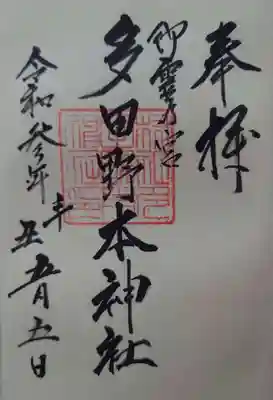 奉拝
御靈乃宮
多田野本神社
令和参年
辛丑
五月五日